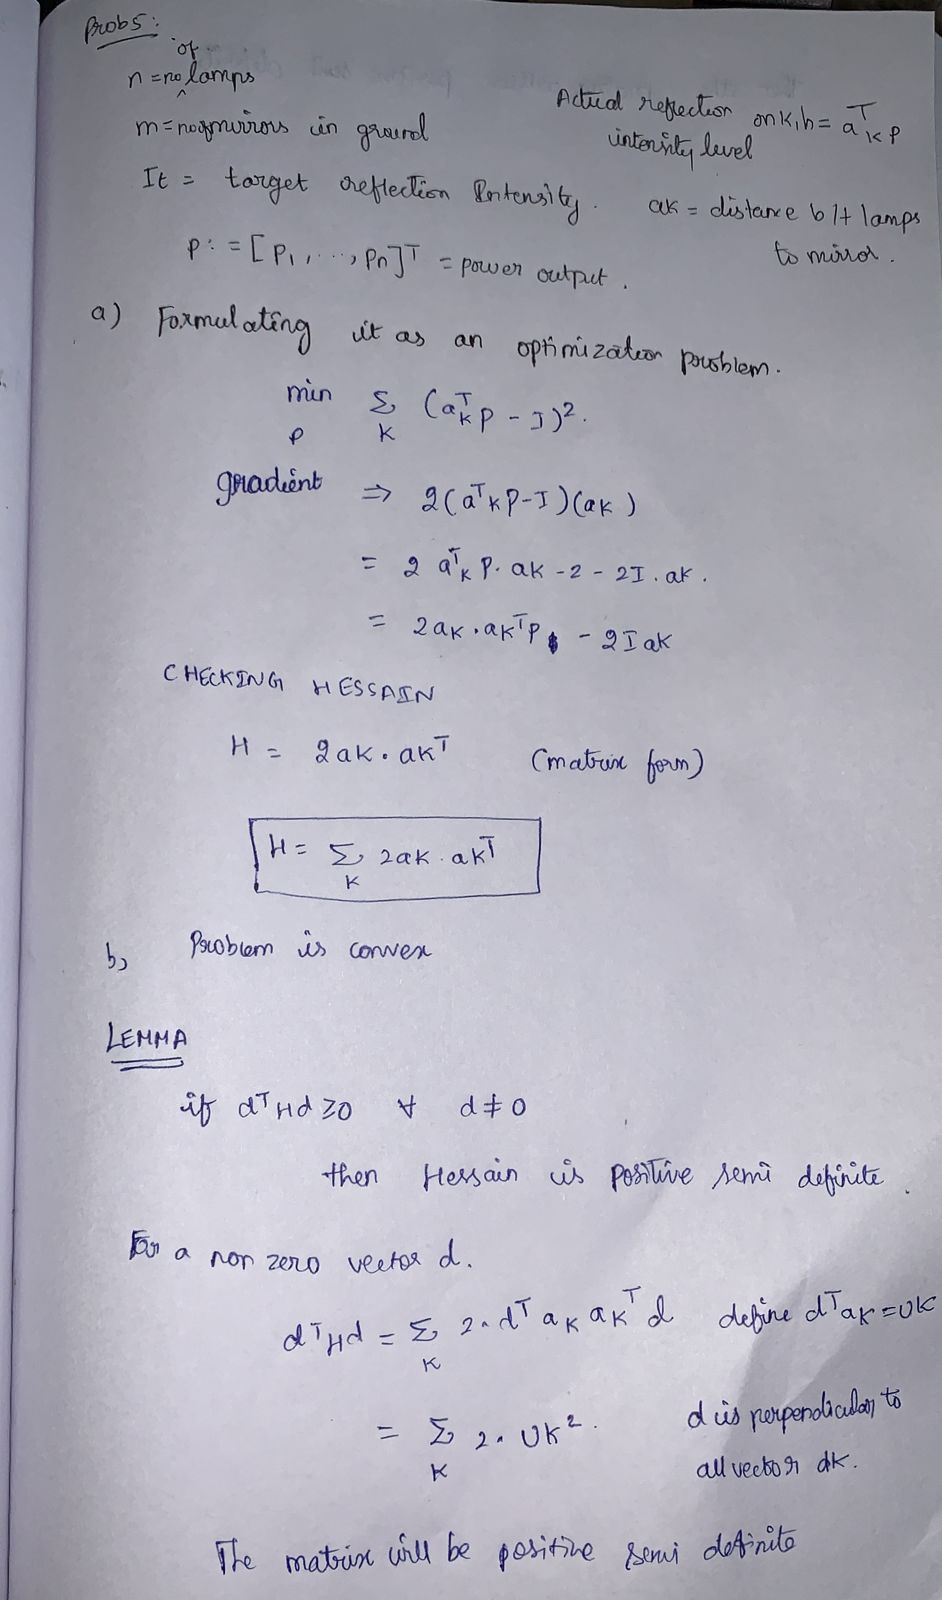 Prob5:
of
n = no lamps
^
m = no of mirrors in ground
Actual reflection on k, h = a_k^T p
intensity level
It = target reflection Intensity.
ak = distance b/t lamps
to mirror.
p: = [P1, ..., Pn]^T = power output.
a) Formulating it as an optimization problem.
min Σ (a_k^T p - I)^2.
p K
gradient ⇒ 2(a^T_K P - I)(aK)
= 2 a^T_K P. aK - 2 - 2I. aK.
= 2aK. aK^T P - 2I aK
CHECKING HESSAIN
H = 2aK. aK^T (matrix form)
H = Σ 2aK. aK^T
K
b, Problem is convex
LEMMA
if d^T Hd ≥ 0 ∀ d ≠ 0
then Hessain is positive semi definite.
For a non zero vector d.
d^T Hd = Σ 2. d^T aK aK^T d define d^T aK = UK
K
= Σ 2. UK^2. d is perpendicular to
K all vector dK.
The matrix will be positive semi definite